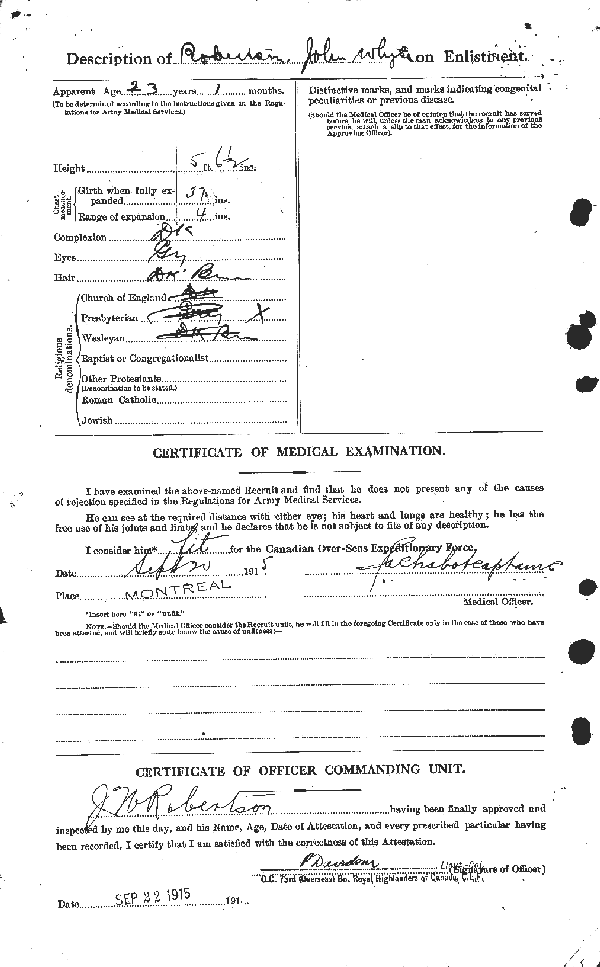 Description of Robertson, John Whyte on Enlistment.
Apparent Age 23 years 1 months.
(To be determined according to the instructions given in the Regulations for Army Medical Services.)
Distinctive marks, and marks indicating congenital
peculiarities or previous disease.
(Should the Medical Officer be of opinion that the recruit has served
before he will, unless the man acknowledges to any previous
service, attach a slip to that effect, for the information of the
Approving Officer).
Height 5 ft. 6½ ins.
Chest measurement
Girth when fully expanded 37 ins.
Range of expansion 4 ins.
Complexion Dk
Eyes Gy
Hair Dk Br
Religious denominations.
Church of England
Presbyterian X
Wesleyan
Baptist or Congregationalist
Other Protestants
(Denomination to be stated.)
Roman Catholic
Jewish
CERTIFICATE OF MEDICAL EXAMINATION.
I have examined the above-named Recruit and find that he does not present any of the causes
of rejection specified in the Regulations for Army Medical Services.
He can see at the required distance with either eye; his heart and lungs are healthy; he has the
free use of his joints and limbs, and he declares that he is not subject to fits of any description.
I consider him* fit for the Canadian Over-Seas Expeditionary Force.
Date Sept 20 1915
Chabot captamc
Place MONTREAL
Medical Officer.
*Insert here "fit" or "unfit."
NOTE.—Should the Medical Officer consider the Recruit unfit, he will fill in the foregoing Certificate only in the case of those who have
been attested, and will briefly state below the cause of unfitness:—
CERTIFICATE OF OFFICER COMMANDING UNIT.
J W Robertson having been finally approved and
inspected by me this day, and his Name, Age, Date of Attestation, and every prescribed particular having
been recorded, I certify that I am satisfied with the correctness of this Attestation.
P Davidson Lieut-Col. (Signature of Officer)
O.C. 73rd Overseas Bn. Royal Highlanders of Canada, C.E.F.
Date SEP 22 1915 191